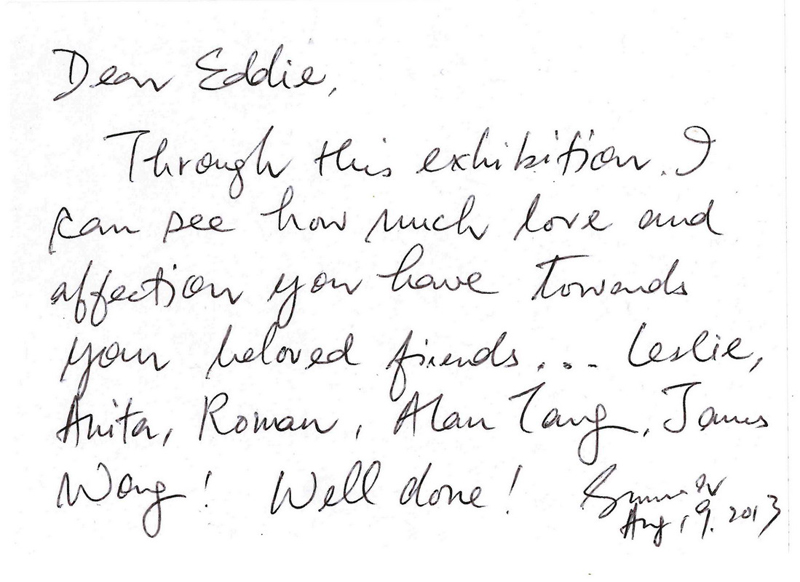 Dear Eddie,
Through this exhibition. I
can see how much love and
affection you have towards
your beloved friends... Leslie,
Anita, Roman, Alan Tang, James
Wong! Well done!
Aug, 19. 2013